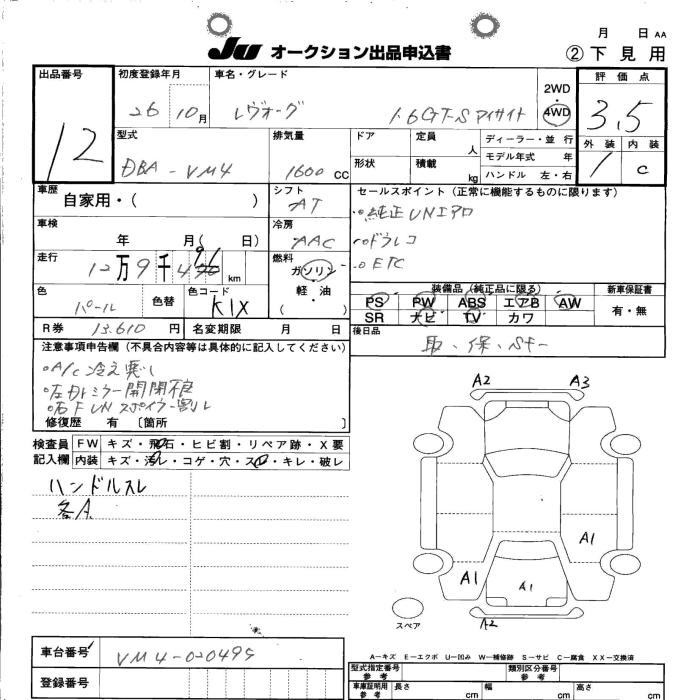 月 日 AA
JU オークション出品申込書
② 下見用
出品番号
12
初度登録年月
26 10月
車名・グレード
レヴォーグ 1.6GT-S アイサイト
2WD
4WD
評価点
3.5
外装 内装
1 C
型式
DBA-VM4
排気量
1600 CC
ドア
定員 人
ディーラー・並行
モデル年式 年
形状
積載 kg
ハンドル 左・右
車歴
自家用・( )
シフト
AT
セールスポイント(正常に機能するものに限ります)
・純正UNエアロ
・ドラレコ
・ETC
車検
年 月( 日)
冷房
AAC
走行
12万9千 km
燃料
ガソリン
軽・油
( )
色
パール
色替
色コード
K1X
装備品(純正品に限る)
新車保証書
PS PW ABS エアB AW
SR ナビ TV カワ
有・無
R券 13.610円
名変期限 月 日
後日品
取・保・
注意事項申告欄(不具合内容等は具体的に記入してください)
・A/C 冷え悪い
・左ドアミラー開閉不良
・右F UNスポイラー割れ
修復歴 有 〔箇所 〕
検査員
記入欄
FW キズ・飛石・ヒビ割・リペア跡・X要
内装 キズ・汚レ・コゲ・穴・スレ・キレ・破レ
ハンドルスレ
各A
A2 A3
A1
A1 A1
A2
スペア
A−キズ E−エクボ U−凹み W−補修跡 S−サビ C−腐食 XX−交換済
車台番号
VM4-020499
登録番号
型式指定番号
参考
類別区分番号
参考
車庫証明用
参考
長さ cm
幅 cm
高さ cm